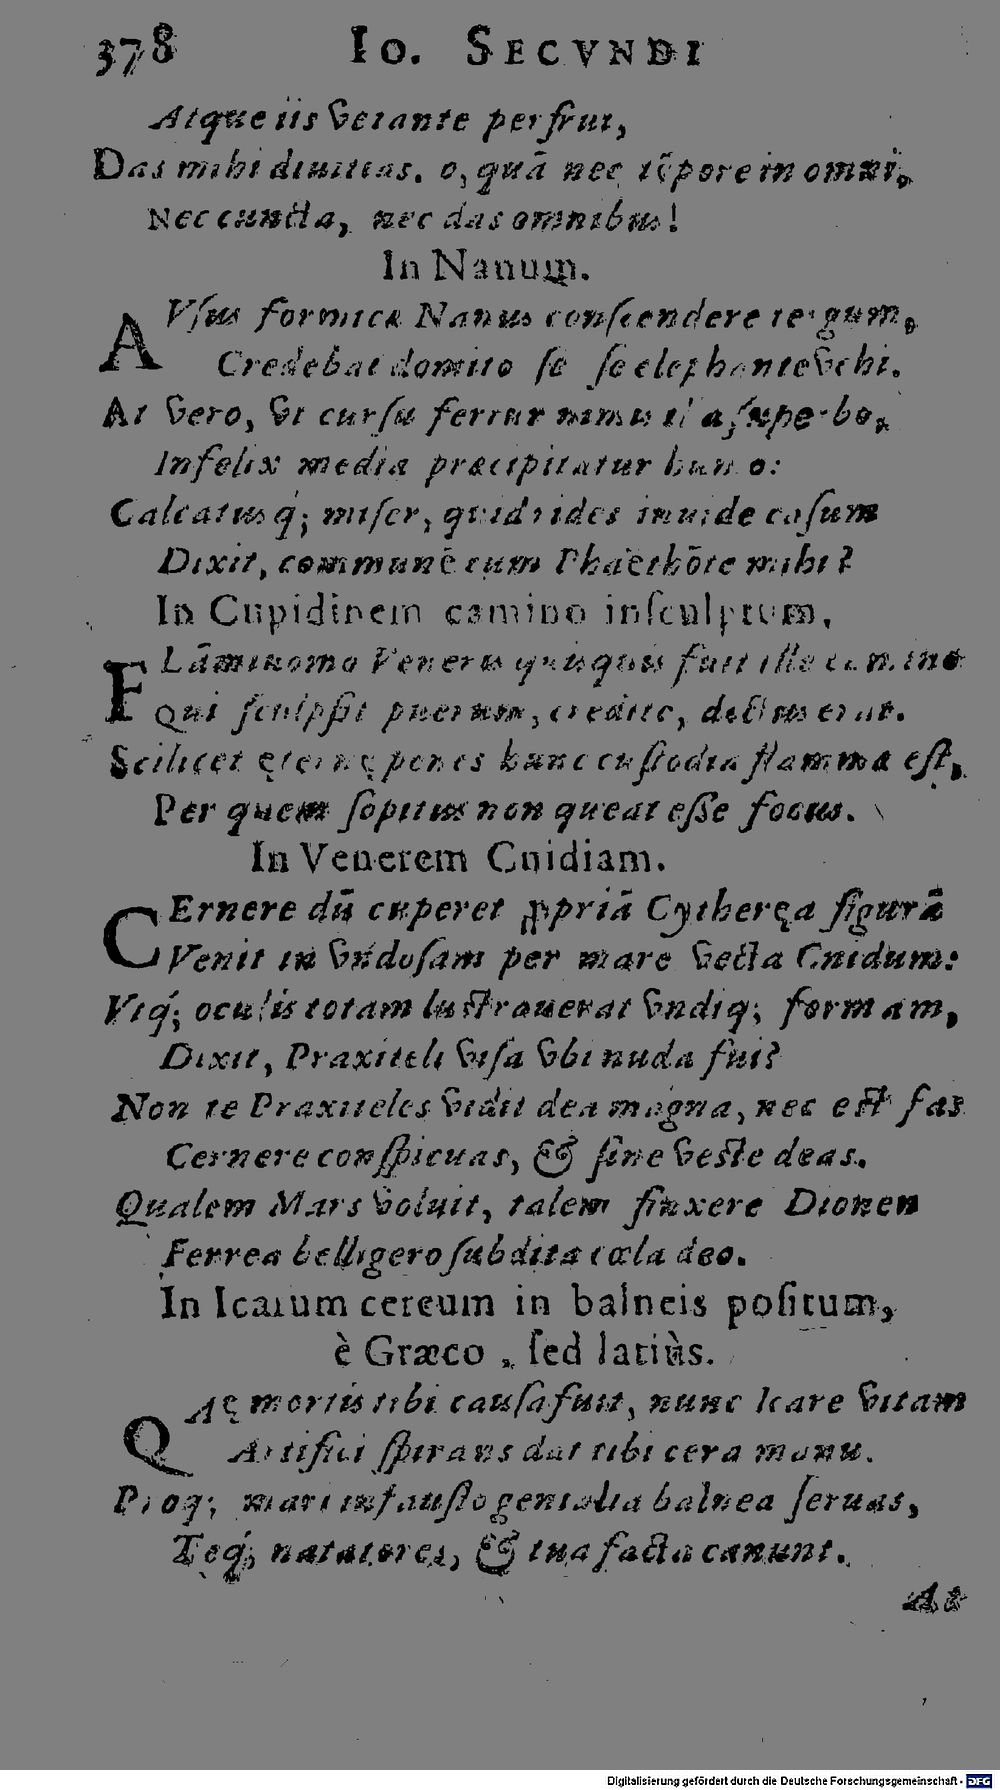 378 IO. SECVNDI
Atque iis vetante perfrui,
Das mihi diuitias. o, quā nec tēpore in omni,
Nec cuncta, nec das omnibus!
In Nanum.
AVſus formicæ Nanus conſcendere tergum,
Credebat domito ſe ſe elephante vehi.
At vero, vt curſu fertur nimis superbo,
Infelix media præcipitatur humo:
Calcatusq́; miſer, quid rides inuide caſum
Dixit, communē cum Phaëthōte mihi?
In Cupidinem camino inſculptum,
FLāmiuomo Veneris quisquis fuit ille camino
Qui ſculpſit puerum, credite, doctus erat.
Scilicet ęternę penes hunc cuſtodia flammæ eſt,
Per quem ſopitus non queat eſſe focus.
In Venerem Cnidiam.
CErnere dū cuperet ꝓpriā Cytheręa figurā
Venit in vndoſam per mare vecta Cnidum:
Vtq́; oculis totam luſtrauerat vndiq; formam,
Dixit, Praxiteli viſa vbi nuda fui?
Non te Praxiteles vidit dea magna, nec eſt fas
Cernere conſpicuas, & ſine veſte deas.
Qualem Mars voluit, talem finxere Dionen
Ferrea belligero ſubdita cæla deo.
In Icarum cereum in balneis poſitum,
è Græco, ſed latiùs.
QAę mortis tibi cauſa fuit, nunc Icare vitam
Artifici ſpirans dat tibi cera manu.
Proq; mari infauſto genialia balnea ſeruas,
Teq́; natatores, & tua facta canunt.
At
Digitalisierung gefördert durch die Deutsche Forschungsgemeinschaft - DFG